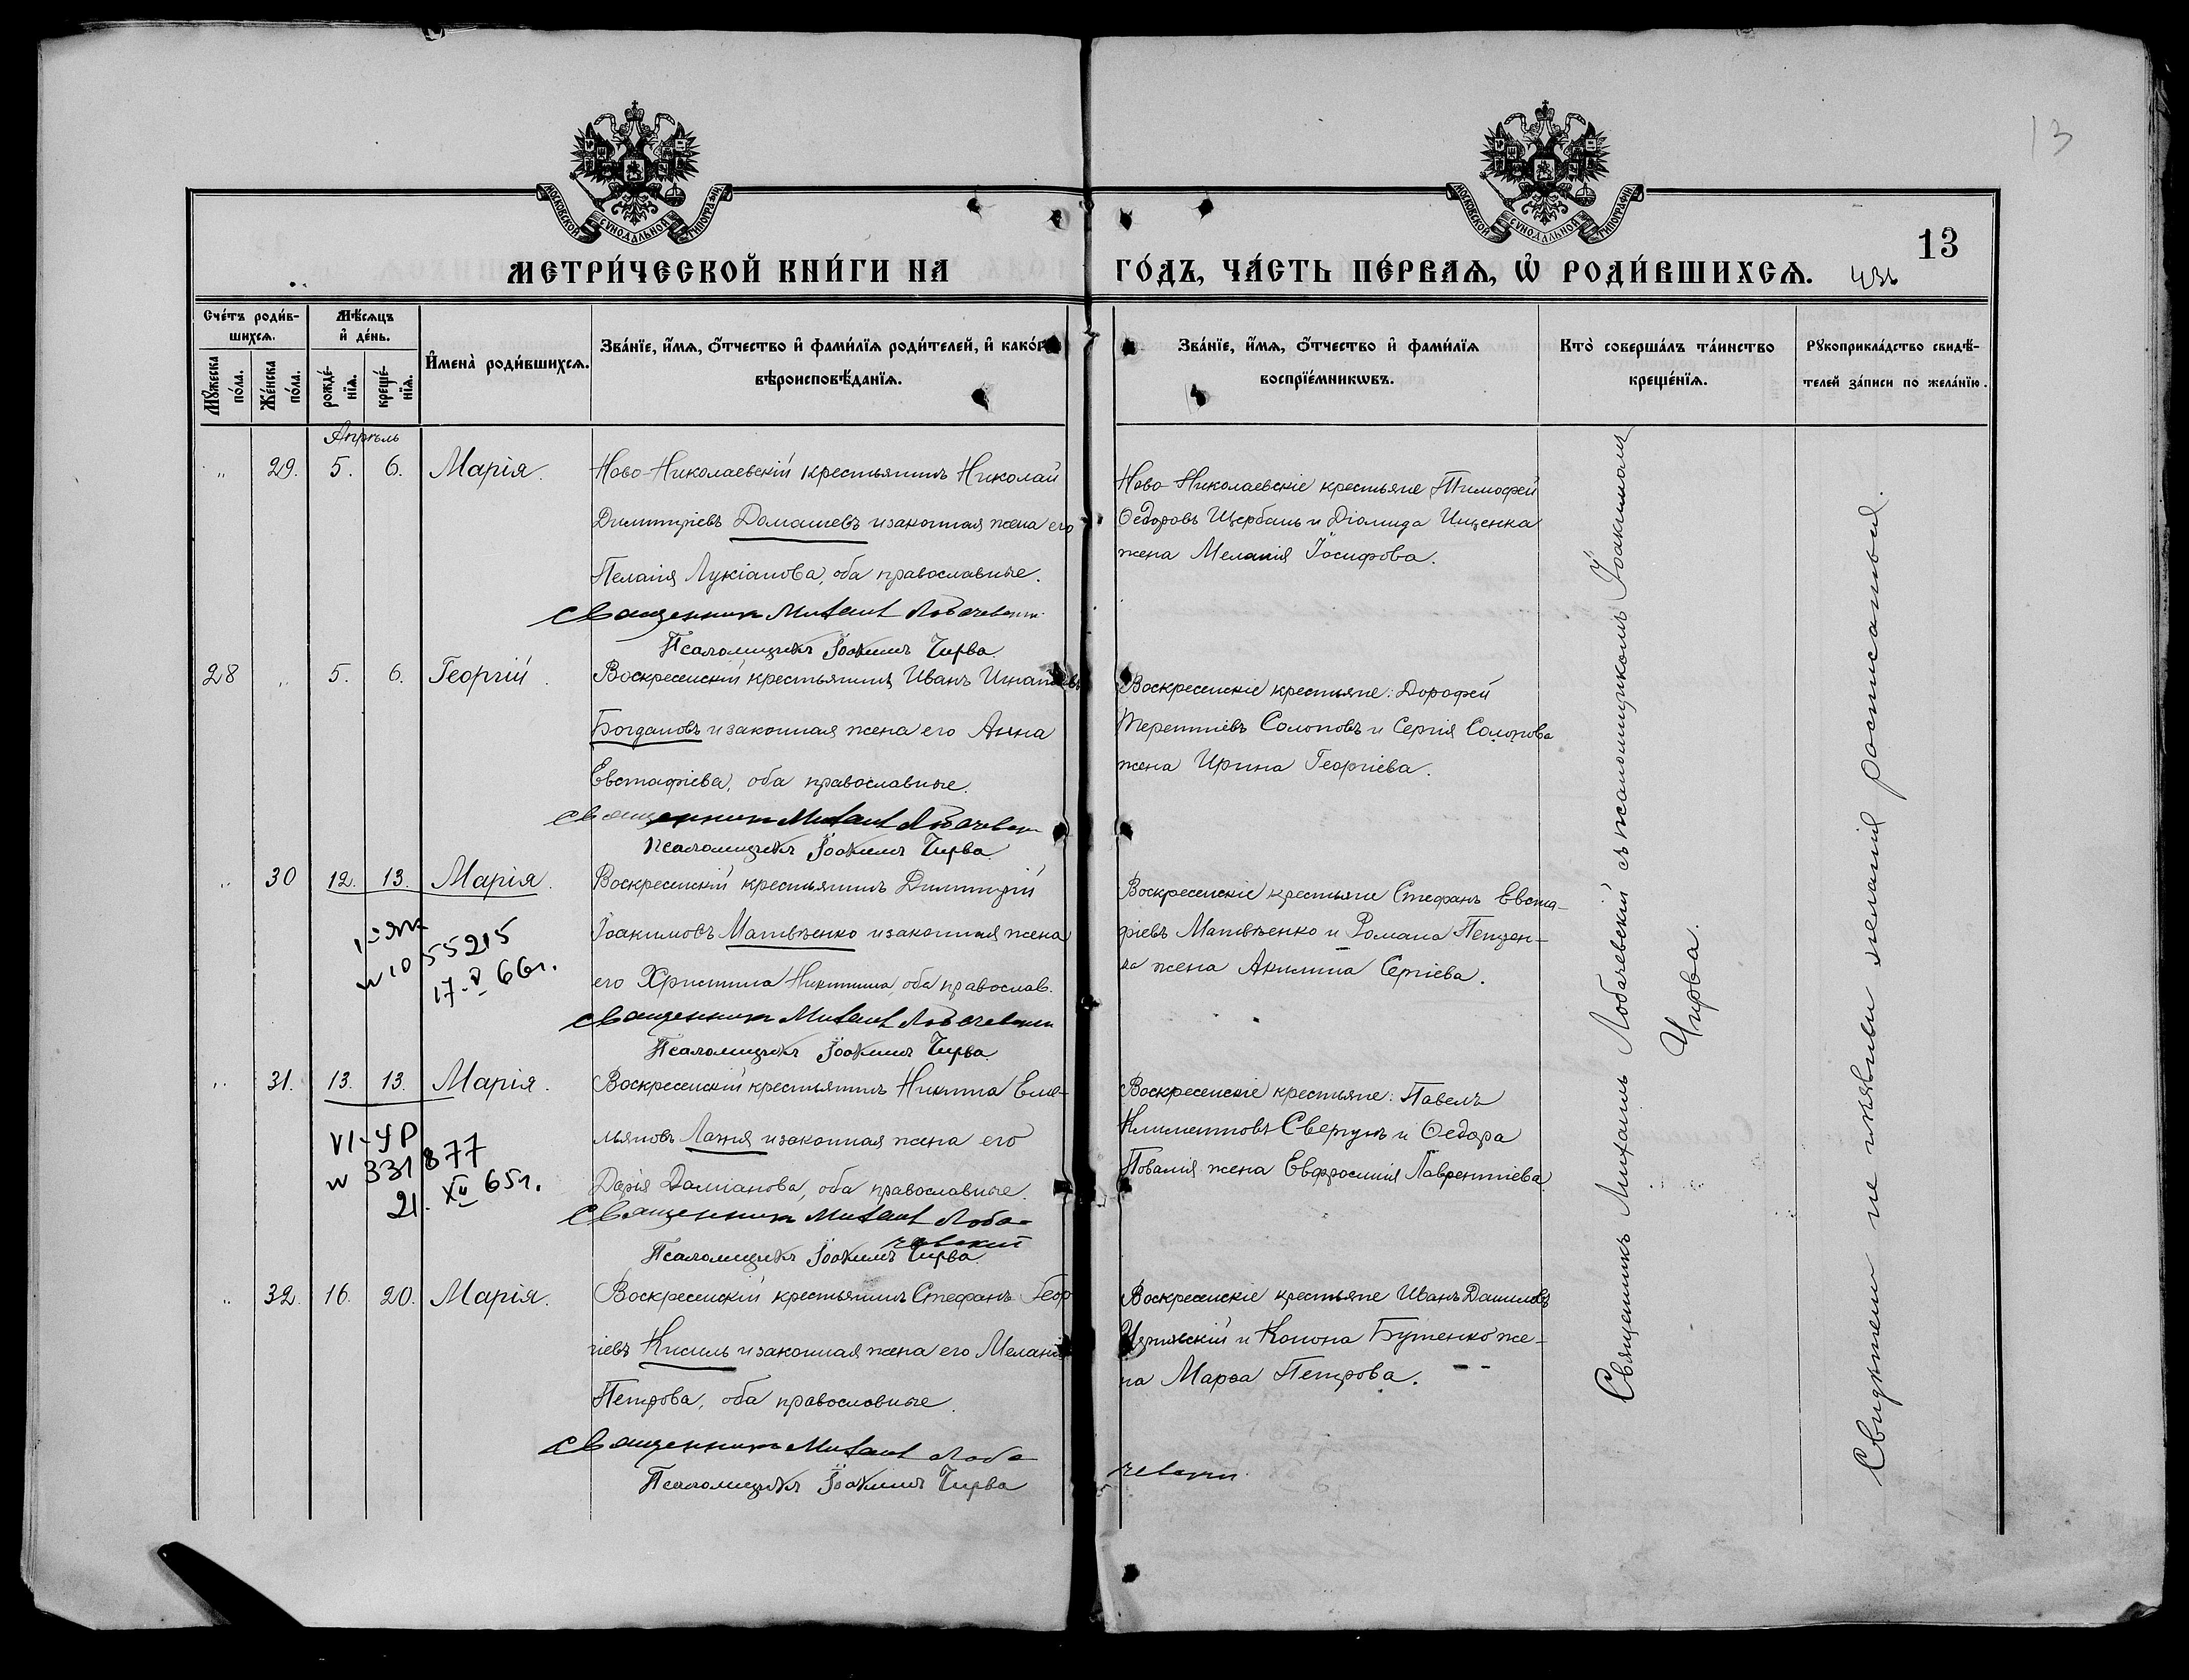 13
МОСКОВСКОЙ СѴНОДАЛЬНОЙ ТИПОГРАФІИ
МОСКОВСКОЙ СѴНОДАЛЬНОЙ ТИПОГРАФІИ
13
МЕТРИ́ЧЕСКОЙ КНИ́ГИ НА ГО́ДЪ, ЧА́СТЬ ПЕ́РВАѦ, Ѡ҆ РОДИ́ВШИХСѦ.
Сче́тъ роди́в-
шихсѧ.
Мꙋжеска по́ла.
Же́нска по́ла.
Мѣ́сѧцъ
и҆ де́нь.
рожде́-
нїѧ.
креще́-
нїѧ.
И҆мена̀ роди́вшихсѧ.
Зва́нїе, и҆́мѧ, ѻ҆́тчество и҆ фами́лїѧ роди́телей, и҆ како́гѡ
вѣроисповѣ́данїѧ.
Зва́нїе, и҆́мѧ, ѻ҆́тчество и҆ фами́лїѧ
воспрїе́мникѡвъ.
Кто̀ соверша́лъ та́инство
креще́нїѧ.
Рꙋкоприкла́дство свидѣ́-
телей за́писи по жела́нїю.
Апрѣль
„ 29. 5. 6. Марія.
Ново-Николаевскій крестьянинъ Николай
Димитріевъ Домашевъ и законная жена его
Пелагія Лукіанова, оба православные.
Священник Михаил Лобачевский
Псаломщикъ Іоакимъ Чирва
Ново-Николаевскіе крестьяне Тимофей
Ѳедоровъ Щербань и Діомида Ищенка
жена Меланія Іосифова.
28 „ 5. 6. Георгій.
Воскресенскій крестьянинъ Иванъ Игнатіевъ
Богдановъ и законная жена его Анна
Евстафіева, оба православные.
Священник Михаил Лобачевский
Псаломщикъ Іоакимъ Чирва
Воскресенскіе крестьяне: Дорофей
Терентіевъ Солоповъ и Сергія Солопова
жена Ирина Георгіева.
„ 30 12. 13. Марія.
N 1055215
17. V 66г.
Воскресенскій крестьянинъ Димитрій
Іоакимовъ Матвѣенко и законная жена
его Христина Никитина, оба православ.
Священник Михаил Лобачевский
Псаломщикъ Іоакимъ Чирва
Воскресенскіе крестьяне Стефанъ Евста-
фіевъ Матвѣенко и Романа
жена Акилина Сергіева.
„ 31. 13. 13. Марія.
VI-УР
N 331877
21. XII 65г.
Воскресенскій крестьянинъ Никита Еме-
льяновъ Лазня и законная жена его
Дарія Даміанова, оба православные.
Священник Михаил Лоба-
чевский
Псаломщикъ Іоакимъ Чирва
Воскресенскіе крестьяне: Павелъ
Климентовъ Свергунъ и Ѳедора
Поваляя жена Евфросинія Лаврентіева
„ 32. 16. 20. Марія.
Воскресенскій крестьянинъ Стефанъ Геор-
гіевъ Кисиль и законная жена его Меланія
Петрова, оба православные.
Священник Михаил Лоба
чевский
Псаломщикъ Іоакимъ Чирва
Воскресенскіе крестьяне Иванъ Даниловъ
и Конона Бутенко же-
на Марѳа Петрова.
Священникъ Михаилъ Лобачевскій съ псаломщикомъ Іоакимомъ
Чирва.
Свидѣтели не изъявили желанія росписаться.